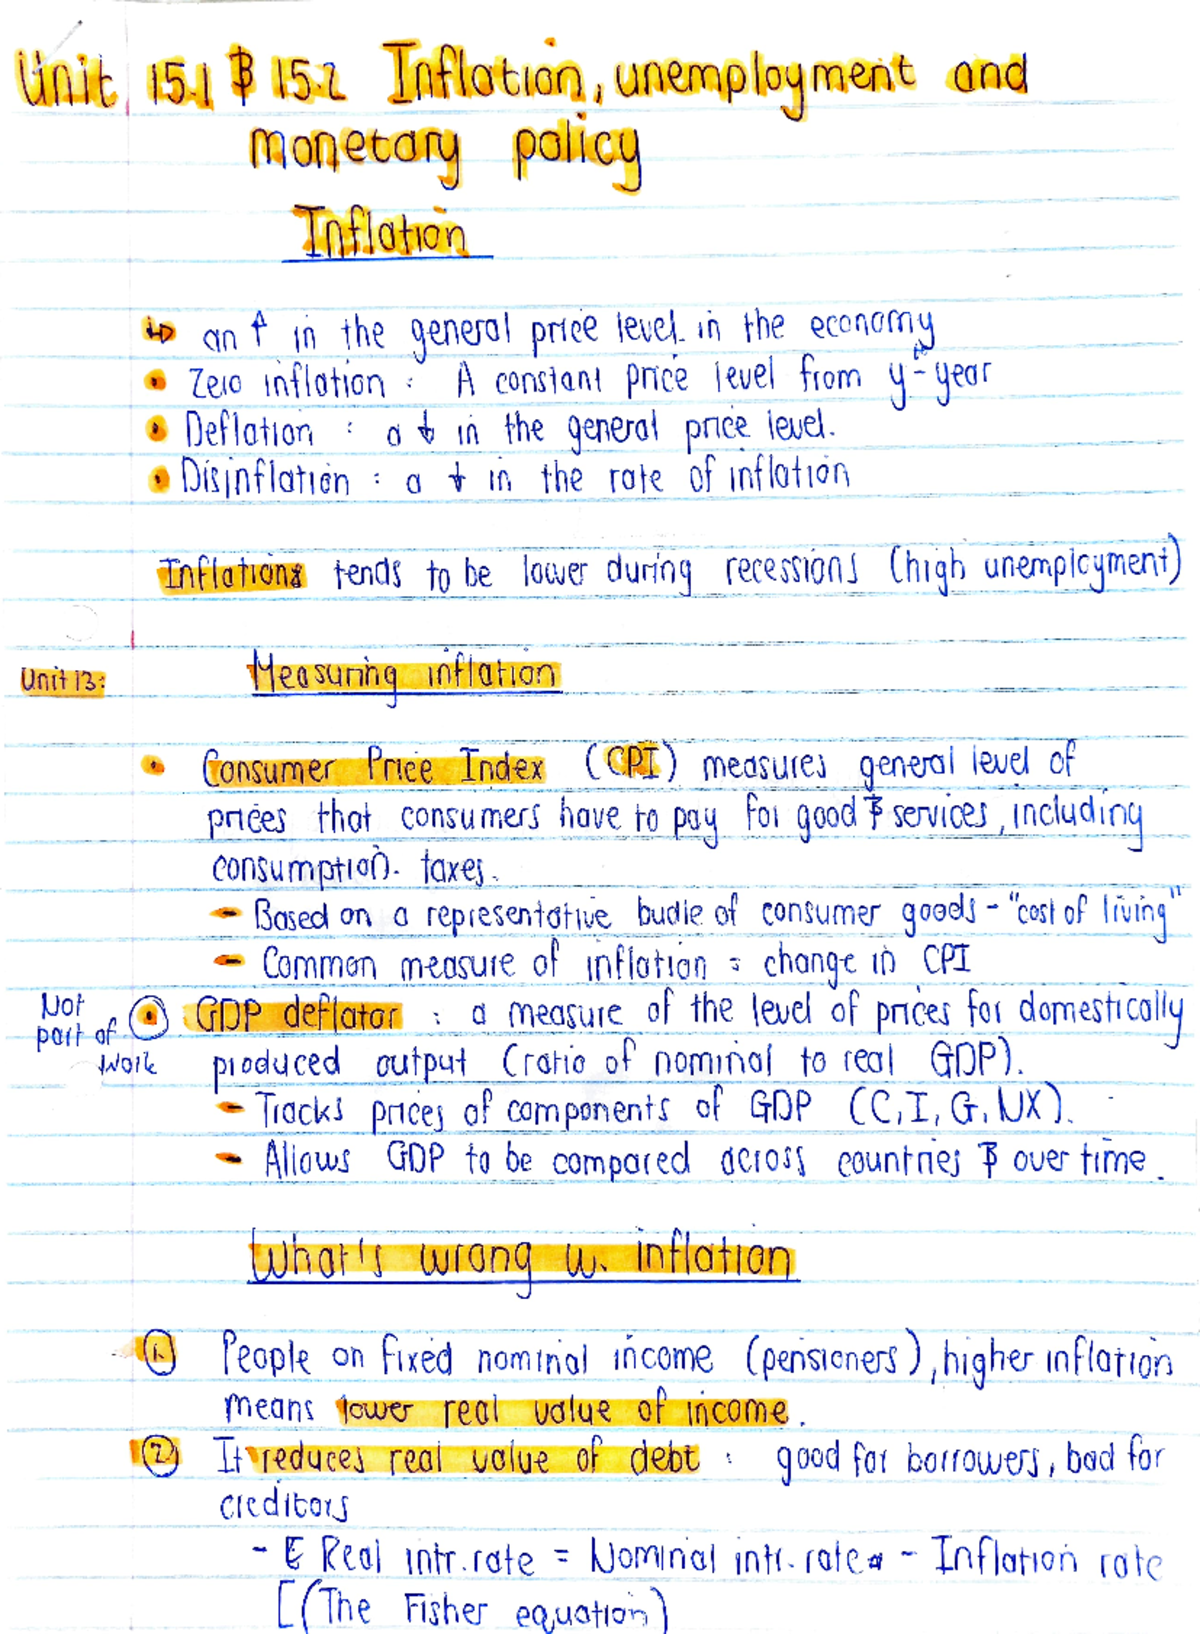 Unit 15.1 & 15.2 Inflation, unemployment and
monetary policy
Inflation
↳ an ↑ in the general price level in the economy
• Zero inflation : A constant price level from y-to-year
• Deflation : a ↓ in the general price level.
• Disinflation : a ↓ in the rate of inflation
Inflations tends to be lower during recessions (high unemployment)
Unit 13: Measuring inflation
• Consumer Price Index (CPI) measures general level of
prices that consumers have to pay for good & services, including
consumption taxes.
- Based on a representative budle of consumer goods - "cost of living"
- Common measure of inflation = change in CPI
Not part of work • GDP deflator : a measure of the level of prices for domestically
produced output (ratio of nominal to real GDP).
- Tracks prices of components of GDP (C, I, G, NX).
- Allows GDP to be compared across countries & over time.
What's wrong w. inflation
1. People on fixed nominal income (pensioners), higher inflation
means lower real value of income.
2. It reduces real value of debt : good for borrowers, bad for
creditors
- Real intr. rate = Nominal intr. rate - Inflation rate
[(The Fisher equation)